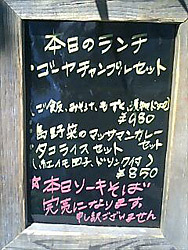 本日のランチ
・ゴーヤチャンプルセット
(ご飯、みそ汁、もずく、漬物付)
¥980
・島野菜のマッサマンカレーセット
・タコライスセット
(紅イモ団子、ドリンク付)
¥850
☆本日ソーキそば
完売になります
申し訳ございません